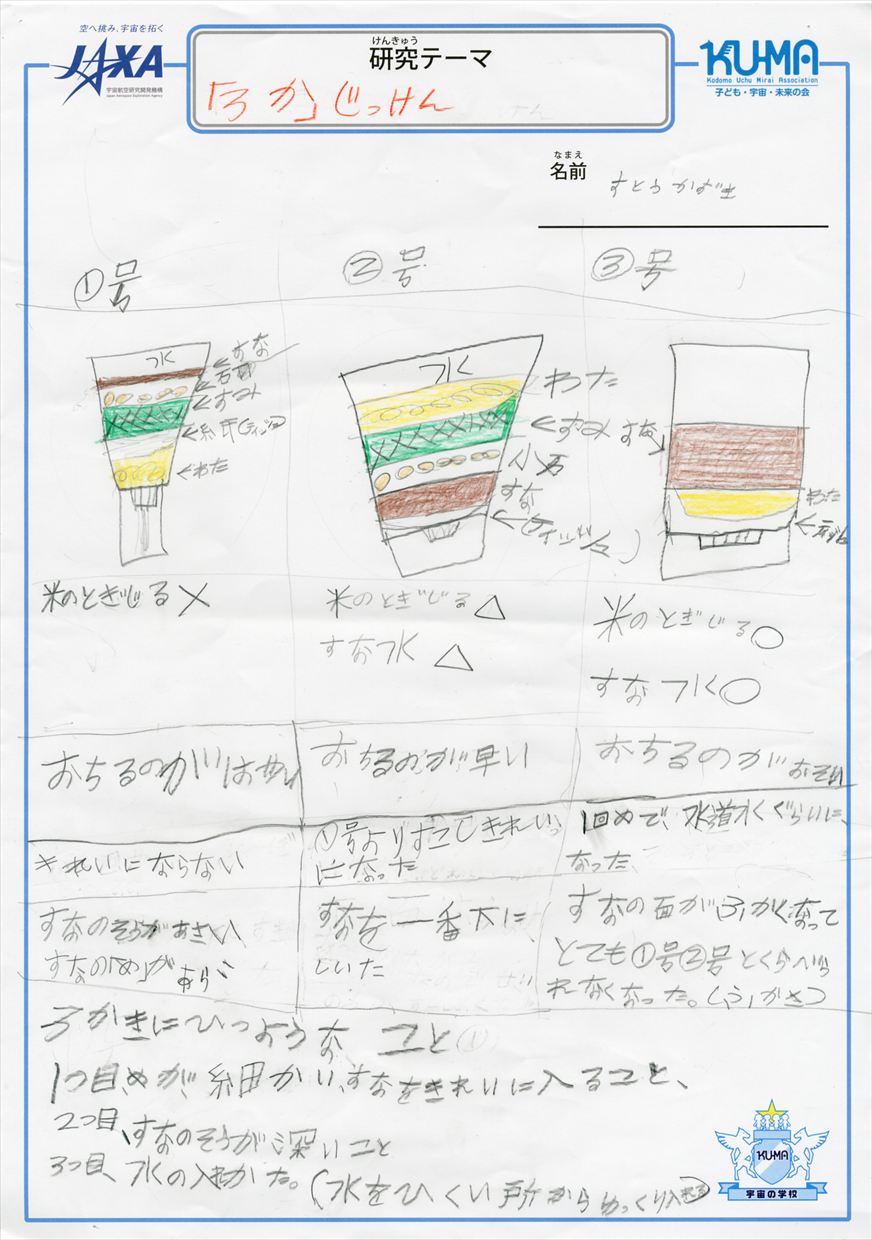 空へ挑み、宇宙を拓く
JAXA
宇宙航空研究開発機構
Japan Aerospace Exploration Agency
けんきゅう
研究テーマ
「ろか」じっけん
KUMA
Kodomo Uchu Mirai Association
子ども・宇宙・未来の会
なまえ
名前
すとうかずき
①号
②号
③号
水
すな
石
すみ
(ティッシュ)
わた
水
わた
すみ
小石
すな
(ティッシュ)
すな
わた
米のとぎじる×
米のとぎじる△
すな水△
米のとぎじる○
すな水○
おちるのがはやい
おちるのが早い
おちるのがおそい
きれいにならない
①号よりすこしきれい
になった
1回めで、水道水くらいに、
なった、
すなのそうがあさい
すなの「め」があらい
すなを一番下に、
しいた
すなの面がふかくなって
とても①号②号とくらべら
れなくなった。(ふかさ)
ろかきにひつような、こと
1つ目、めが、細かい、すなをきれいに入ること、
2つ目、すなのそうが深いこと
3つ目、水の入れかた。(水をひくい所からゆっくり入れる)
KUMA
宇宙の学校